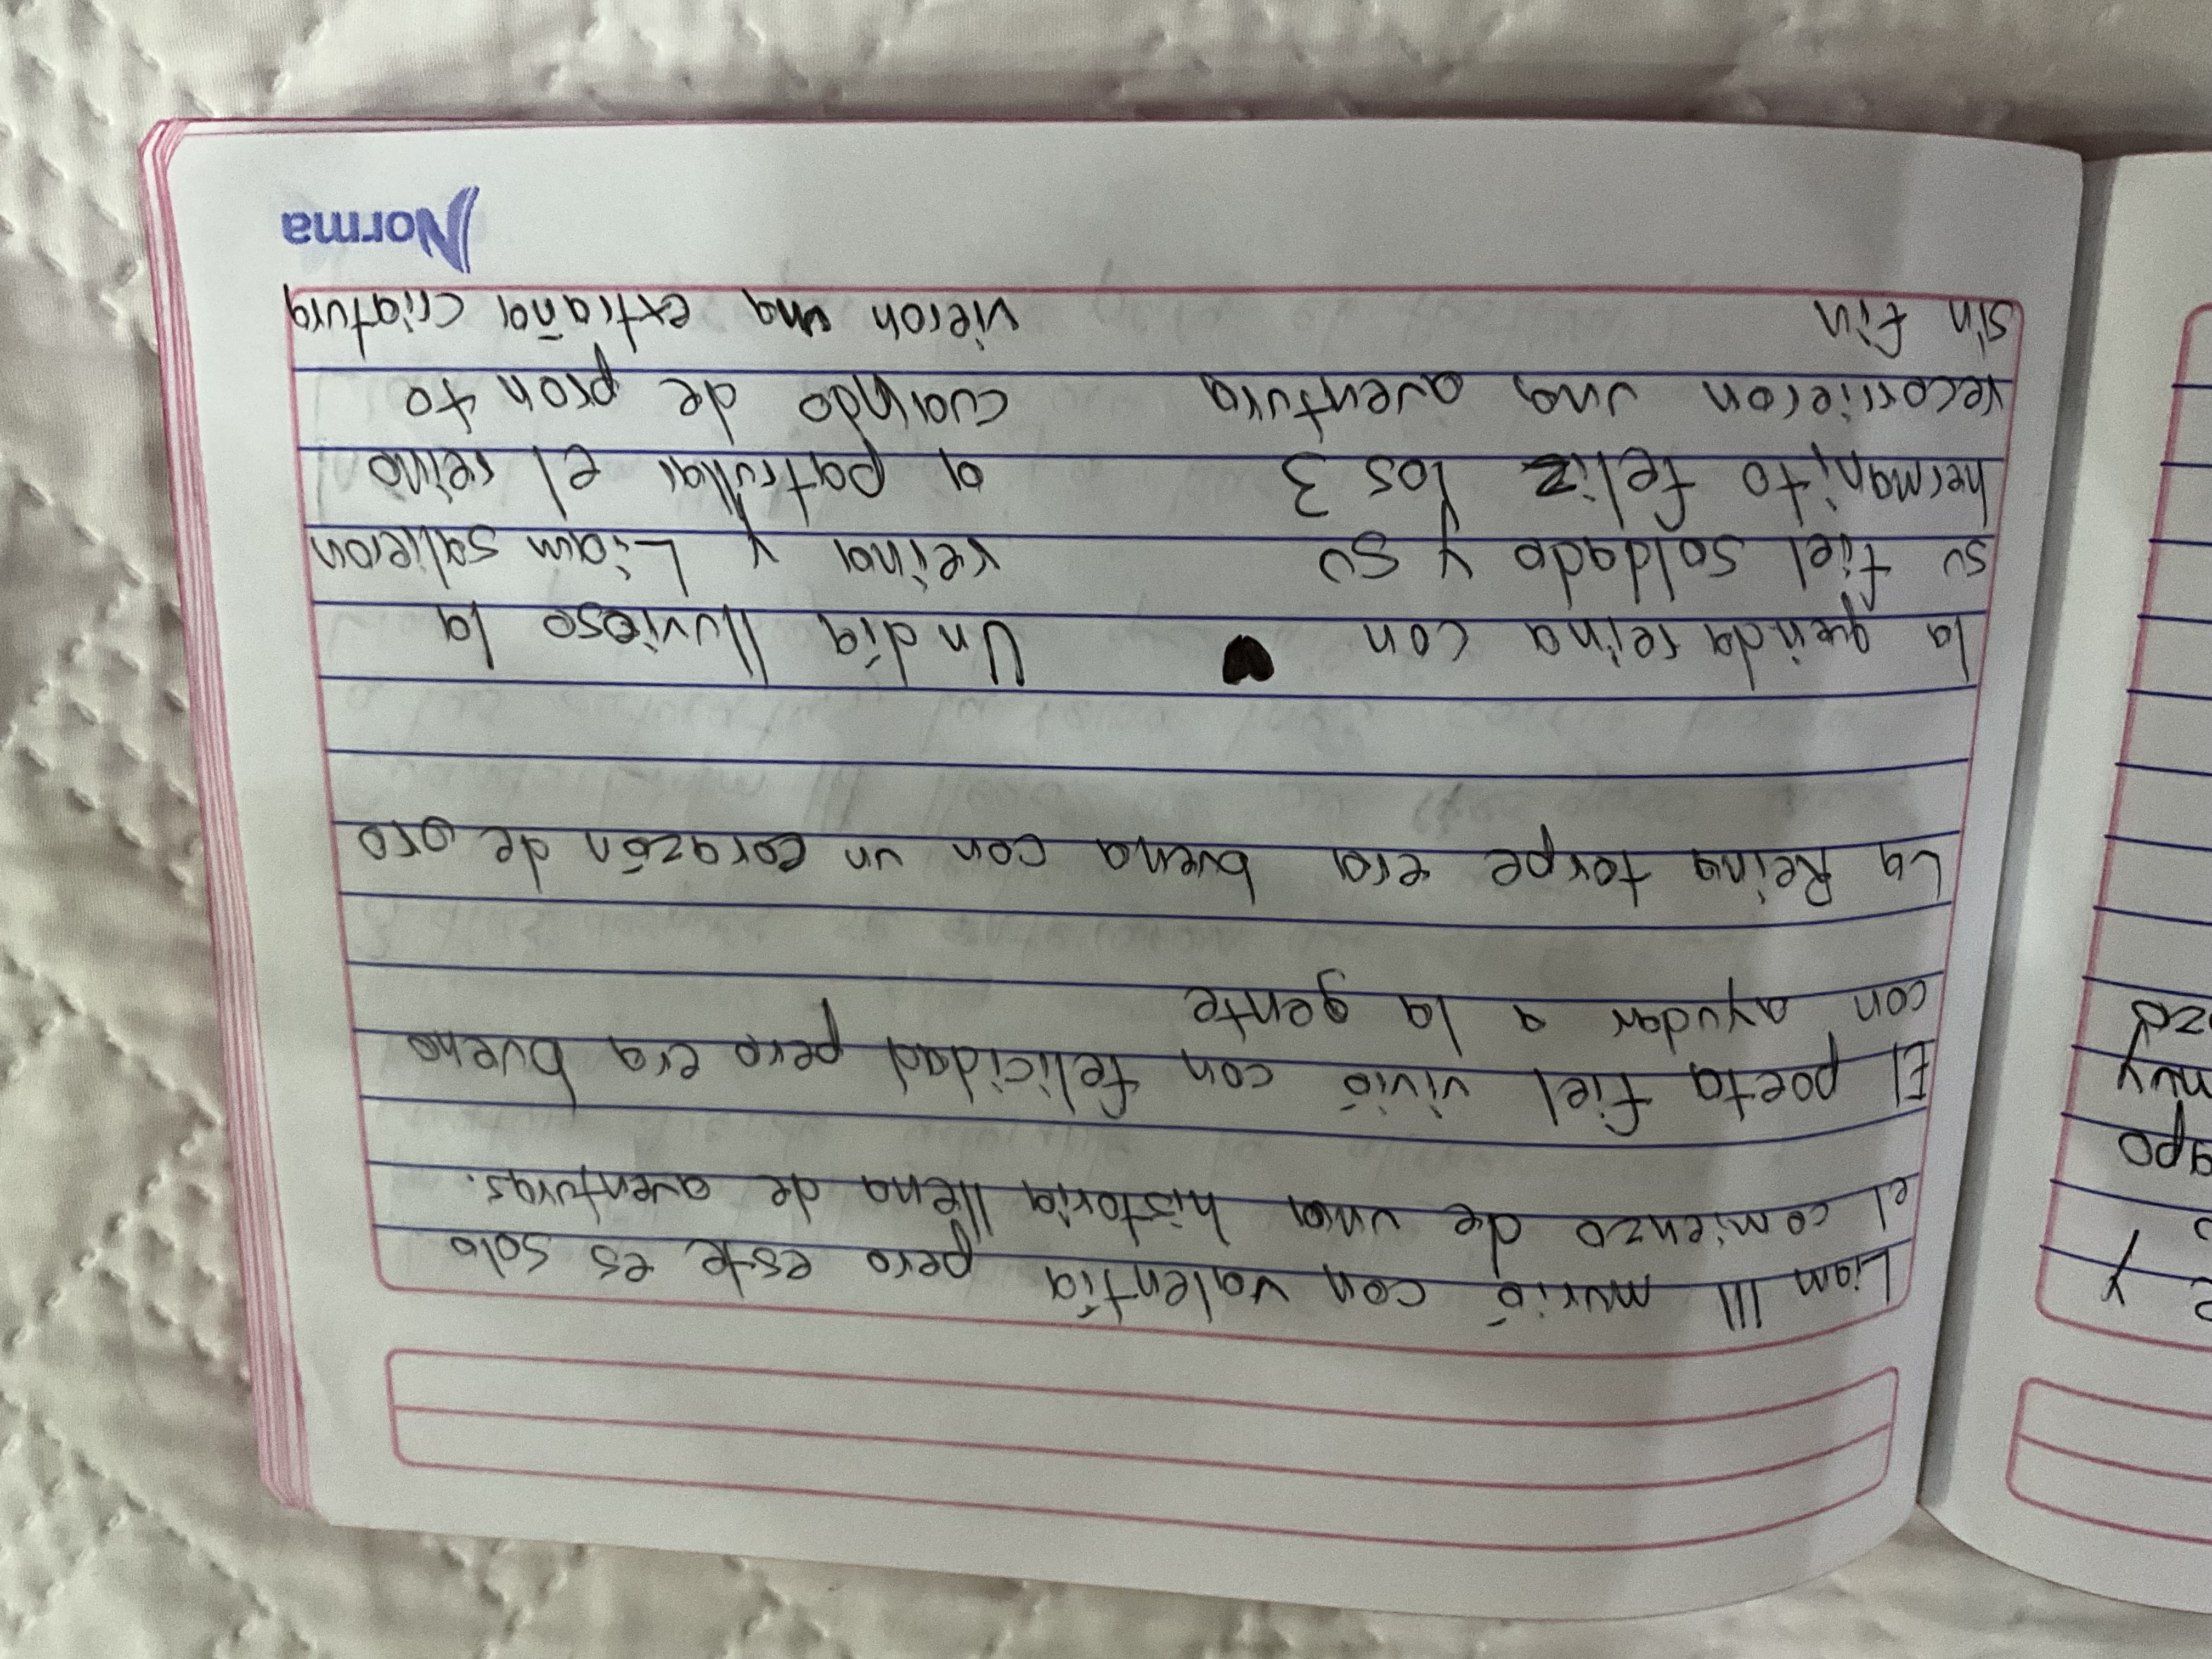 Liam III murió con valentía pero este es solo
el comienzo de una historia llena de aventuras.
El poeta fiel vivió con felicidad pero era bueno
con ayudar a la gente
La Reina torpe era buena con un corazón de oro
la querida reina con
su fiel soldado y su
hermanito feliz los 3
recorrieron una aventura
sin fin
Un día lluvioso la
reina y Liam salieron
a patrullar el reino
cuando de pron to
vieron una extraña criatura
Norma
y
muy